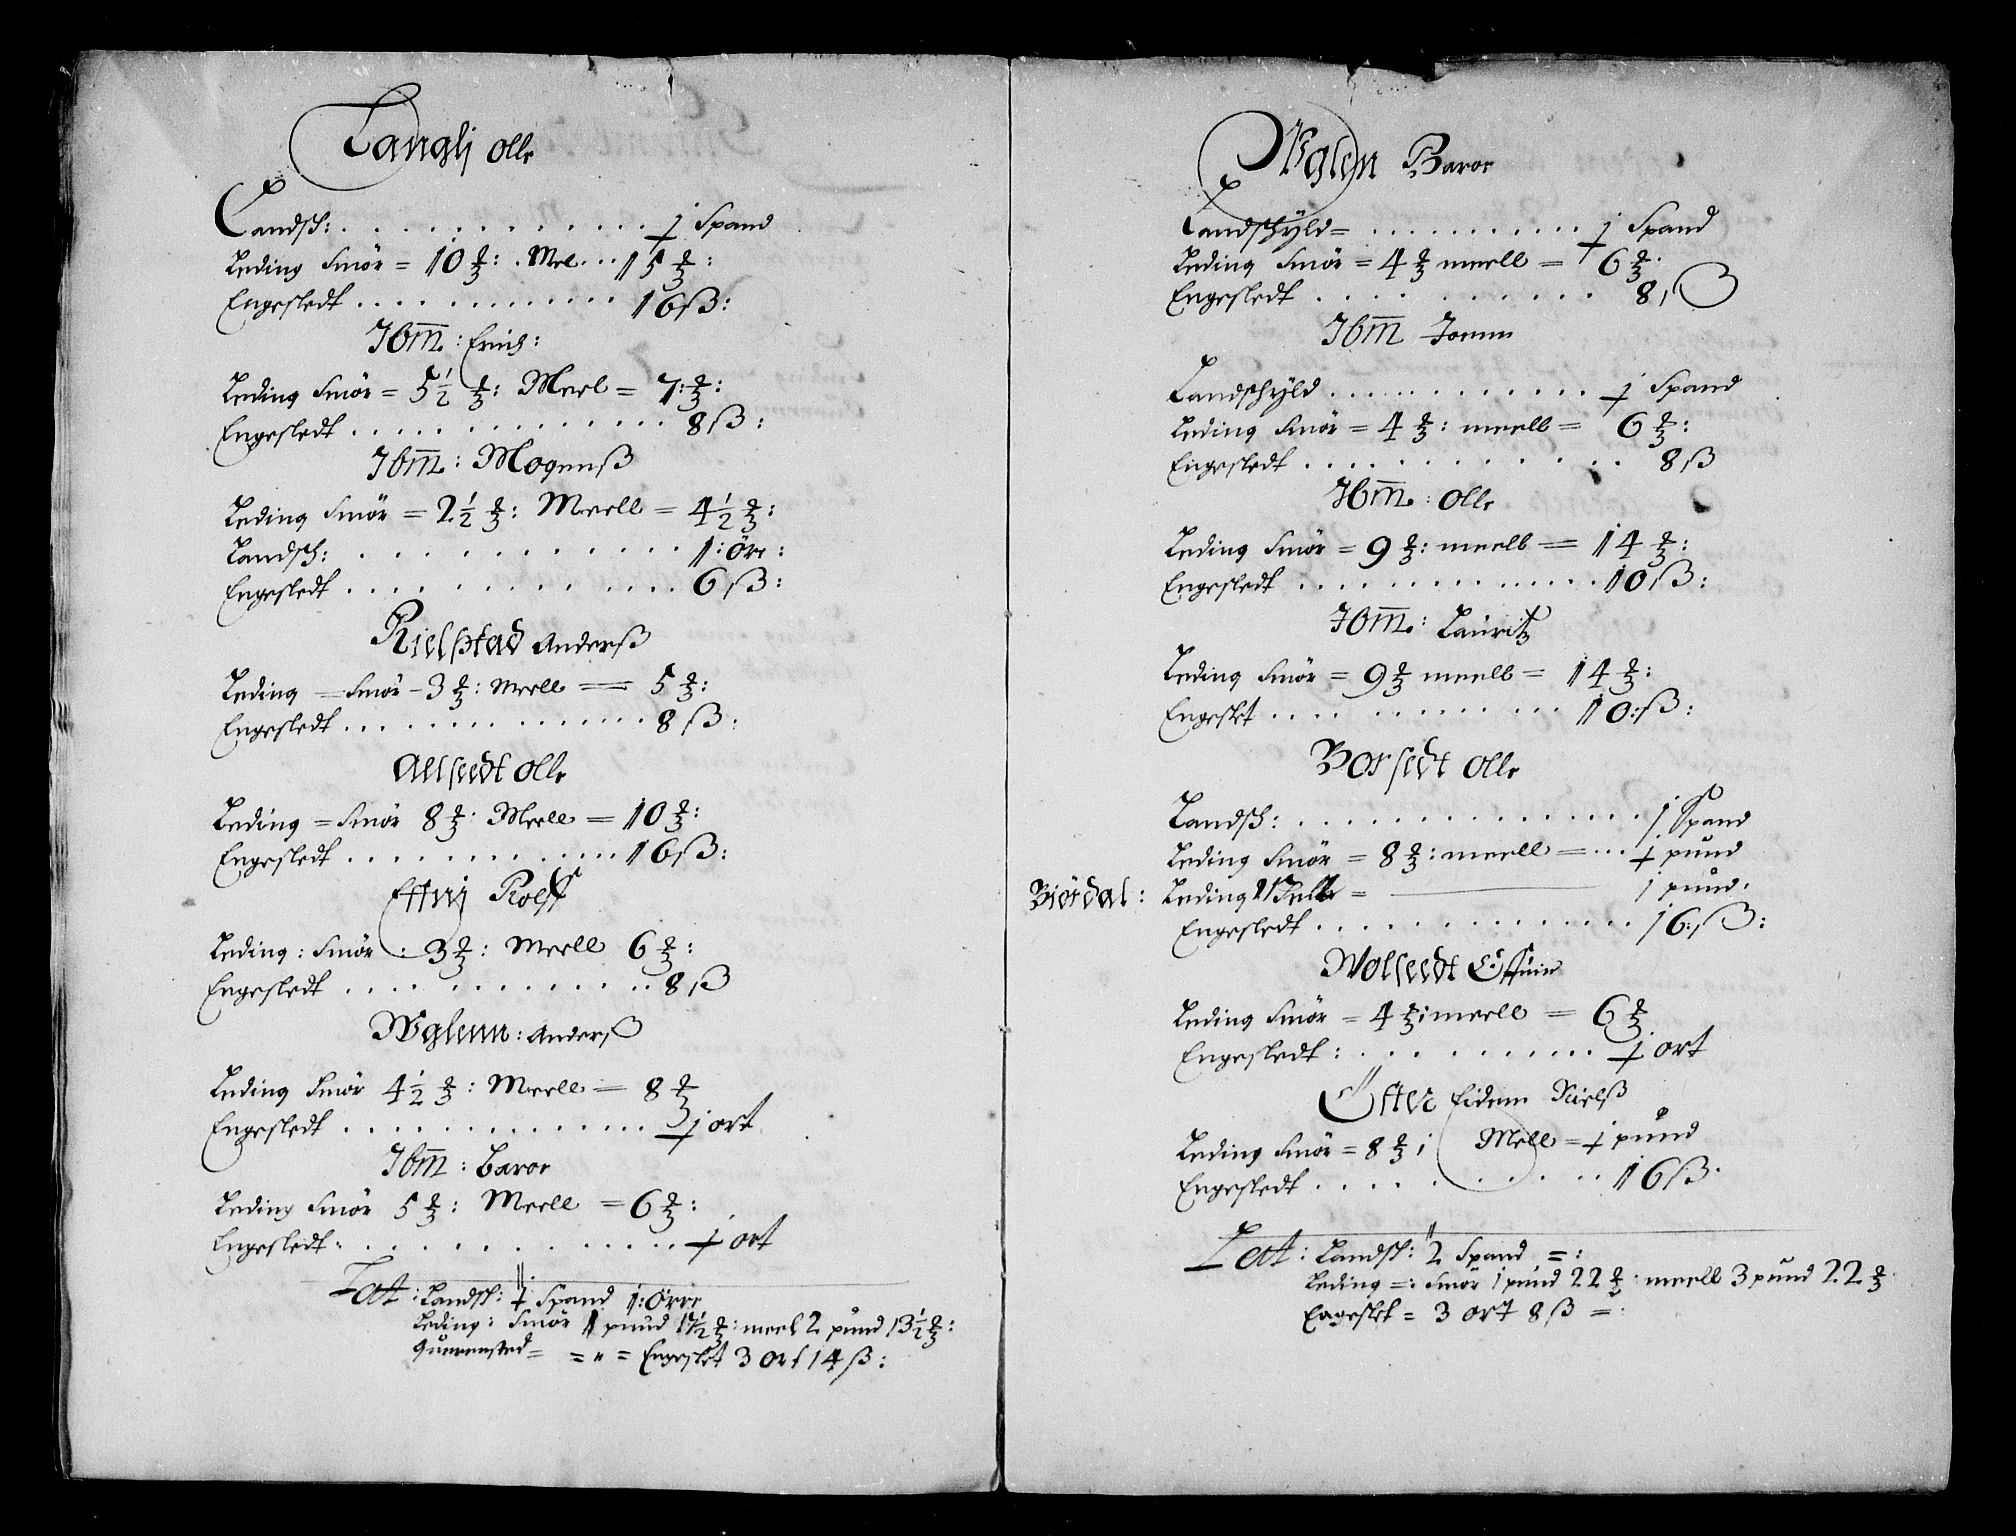 Langlj Olle
Landsch: . . . . . . . . . . . . j Spand
Leding Smör = 10 ℔: . Mel . . . 15 ℔:
Engesledt . . . . . . . . . . . . 16 ß:
Ibm: Erich:
Leding Smör = 5½ ℔: Meel = 7: ℔:
Engesledt . . . . . . . . . . . . . . 8 ß:
Ibm: Mogenß
Leding Smör = 2½ ℔: Meell = 4½ ℔:
Landsch: . . . . . . . . . . . . 1: öre:
Engesledt . . . . . . . . . . . . . 6 ß:
Rielstad Anderß
Leding = Smör - 3 ℔: Meell == 5 ℔:
Engesledt . . . . . . . . . . . . . 8 ß:
Allstedt Olle
Leding = Smör 8 ℔: Meell = 10 ℔:
Engesledt . . . . . . . . . . . . 16 ß:
Ettnj Rolff
Leding: Smör : 3 ℔: Meell 6 ℔:
Engesledt . . . . . . . . . . . . . 8 ß
Wglenn: Anderß
Leding Smör 4½ ℔: Meell = 8 ℔
Engesledt . . . . . . . . . . . . . . j ort
Ibm: Baroe
Leding Smör 5 ℔: Meell = 6 ℔:
Engesledt: . . . . . . . . . . . . . j ort
Lat: Landsch: j Spand 1: Örre
Leding: Smör 1 pund 17½ ℔: meel 2 pund 13½ ℔:
= " = Engeslet 3 Ort 14 ß:
Wglen Baroe
Landschyld = . . . . . . . . . . . j Spand
Leding Smör = 4 ℔ meell = 6 ℔.
Engesledt . . . . . . . . . . 8 ß
Ibm Joenn
Landschyld . . . . . . . . . . . . j Spand
Leding Smör = 4 ℔: meell = 6 ℔:
Engesledt . . . . . . . . . . . . . 8 ß
Ibm: Olle
Leding Smör = 9 ℔: meell = 14 ℔:
Engesledt . . . . . . . . . . . . . . 10 ß:
Ibm: Lauritz
Leding Smör = 9 ℔ meell = 14 ℔:
Engeslet . . . . . . . . . . . . 10: ß:
Borsedt Olle
Landsch: . . . . . . . . . . . . . . . . j Spand
Leding Smör = 8 ℔: meell = . . . j pund
Biördal: Leding = j pund.
Engesledt . . . . . . . . . . . . . . 16: ß:
Wolseedt
Leding Smör = 4 ℔: meell = 6 ℔
Engesledt: . . . . . . . . . . . j ort
Otter Eidem Nielß
Leding Smör = 8 ℔: Mell = j pund
Engesledt . . . . . . . . . . . . . 16 ß.
Lat: Landsch: 2 Spand =:
Leding =: Smör 1 pund 22 ℔: meell 3 pund 22 ℔:
Engeslet = 3 ort 8 ß =: